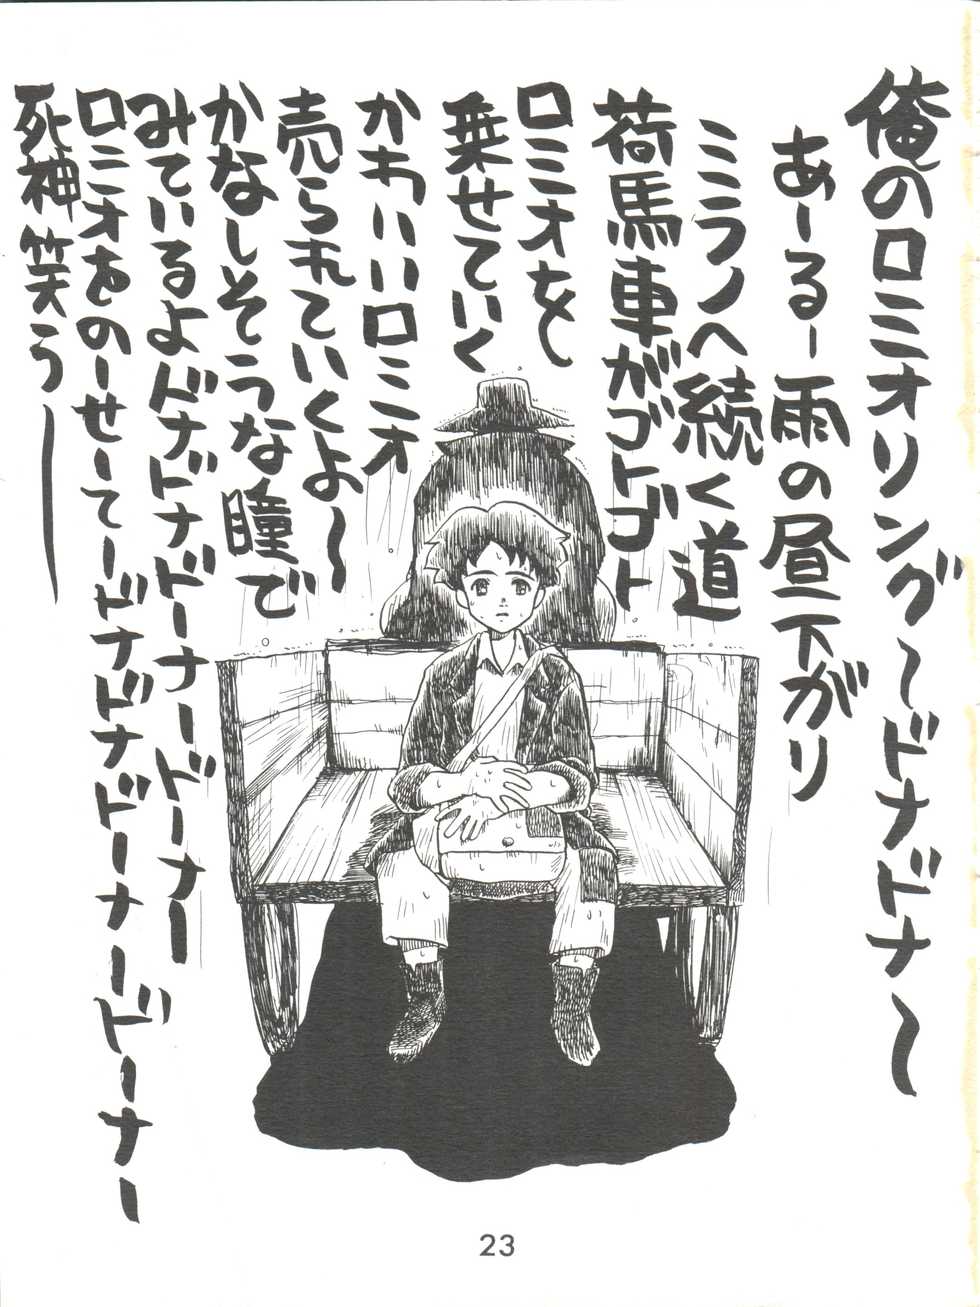 俺のロミオリング〜ドナドナ〜
あーるー雨の昼下がり
ミラノへ続く道
荷馬車がゴトゴト
ロミオを
乗せていく
かわいいロミオ
売られていくよ〜
かなしそうな瞳で
みているよドナドナドーナードーナー
ロミオをのーせーてードナドナドーナードーナー
死神笑うー
23